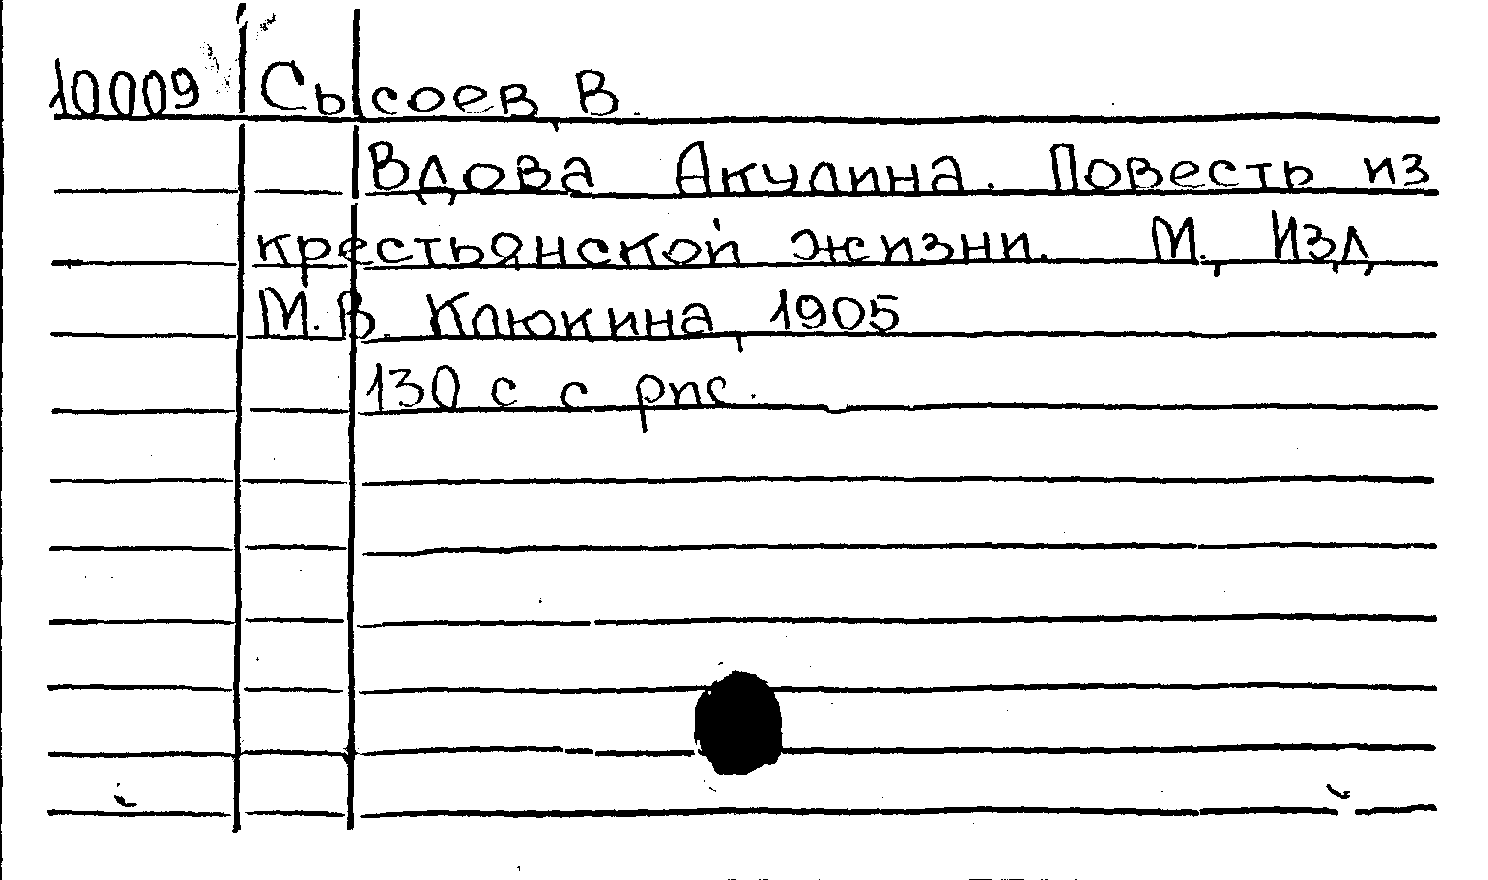 10009 Сысоев, В.
Вдова Акулина. Повесть из
крестьянской жизни. М., Изд.
М.В. Клюкина, 1905
130 с с рис.